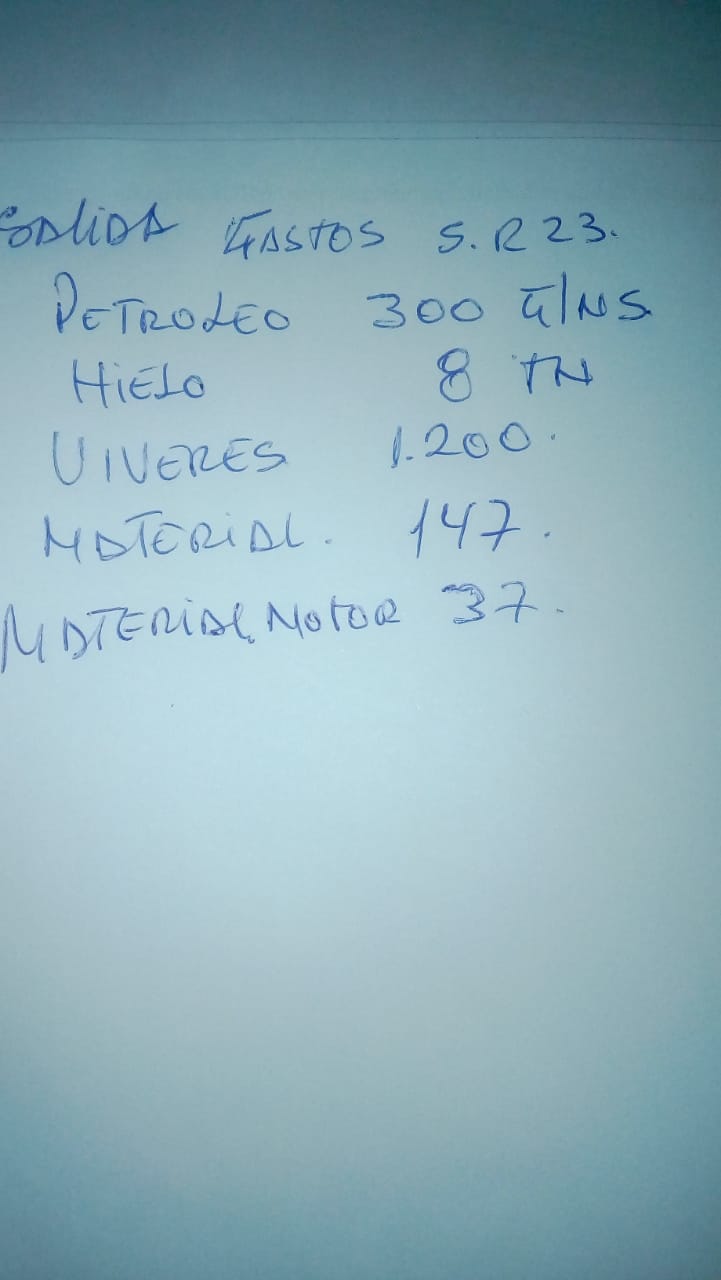 SALIDA GASTOS S.R 23.
PETROLEO 300 G/NS
HIELO 8 TN
VIVERES 1.200.
MATERIAL. 147.
MATERIAL MOTOR 37.